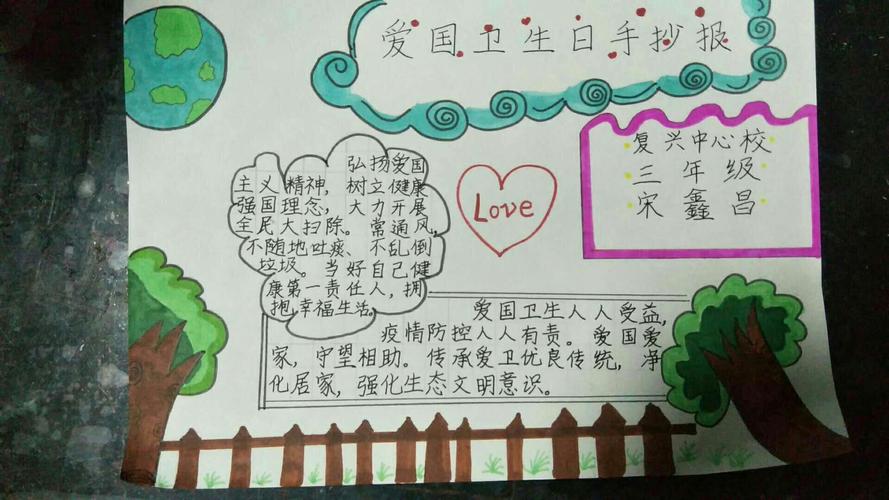 爱国卫生日手抄报
复兴中心校
三年级
宋鑫昌
弘扬爱国
主义精神，树立健康
强国理念，大力开展
全民大扫除。常通风，
不随地吐痰、不乱倒
垃圾。当好自己健
康第一责任人，拥
抱幸福生活。
Love
爱国卫生人人受益，
疫情防控人人有责。爱国爱
家，守望相助。传承爱卫优良传统，净
化居家，强化生态文明意识。